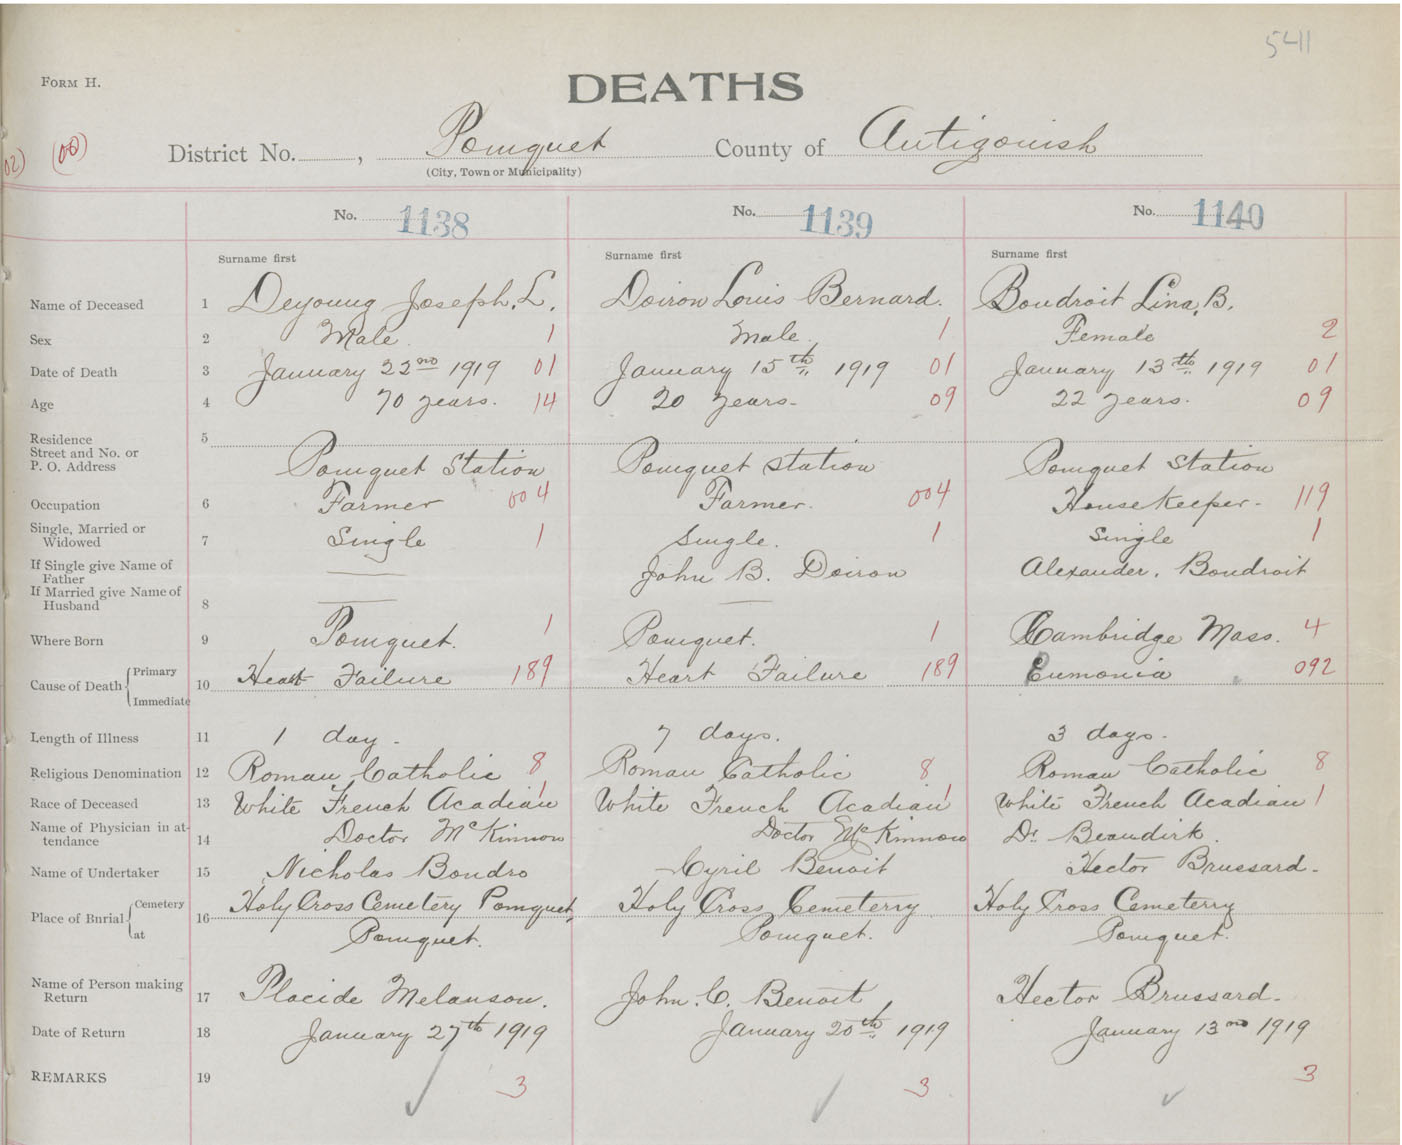 5411
FORM H.
DEATHS
02) (00)
District No. , Pomquet County of Antigonish
(City, Town or Municipality)
No. 1138 No. 1139 No. 1140
Surname first Surname first Surname first
Name of Deceased 1 Deyoung Joseph. L. Doiron Louis Bernard. Boudroit Lina, B.
Sex 2 Male. 1 Male. 1 Female 2
Date of Death 3 January 22nd 1919 01 January 15th 1919 01 January 13th 1919 01
Age 4 70 years. 14 20 years- 09 22 years. 09
Residence 5
Street and No. or
P. O. Address Pomquet Station Pomquet station Pomquet Station
Occupation 6 Farmer 004 Farmer. 004 Housekeeper- 119
Single, Married or
Widowed 7 Single 1 Single. 1 Single 1
If Single give Name of
Father John B. Doiron Alexander. Boudroit
If Married give Name of
Husband 8
Where Born 9 Pomquet. 1 Pomquet. 1 Cambridge Mass. 4
Cause of Death Primary
Immediate 10 Heart Failure 189 Heart Failure 189 Eumonia 092
Length of Illness 11 1 day- 7 days. 3 days-
Religious Denomination 12 Roman Catholic 8 Roman Catholic 8 Roman Catholic 8
Race of Deceased 13 White French Acadian 1 White French Acadian 1 White French Acadian 1
Name of Physician in at-
tendance 14 Doctor McKinnon Doctor McKinnon Dr. Beaudirk.
Name of Undertaker 15 Nicholas Bondro Cyril Benoit Hector Brussard-
Place of Burial Cemetery 16 Holy Cross Cemetery Pomquet, Holy Cross Cemeterry Holy Cross Cemeterry
at Pomquet. Pomquet. Pomquet.
Name of Person making
Return 17 Placide Melanson. John. C. Benoit Hector Brussard-
Date of Return 18 January 27th 1919 January 20th 1919 January 13nd 1919
REMARKS 19 3 3 3